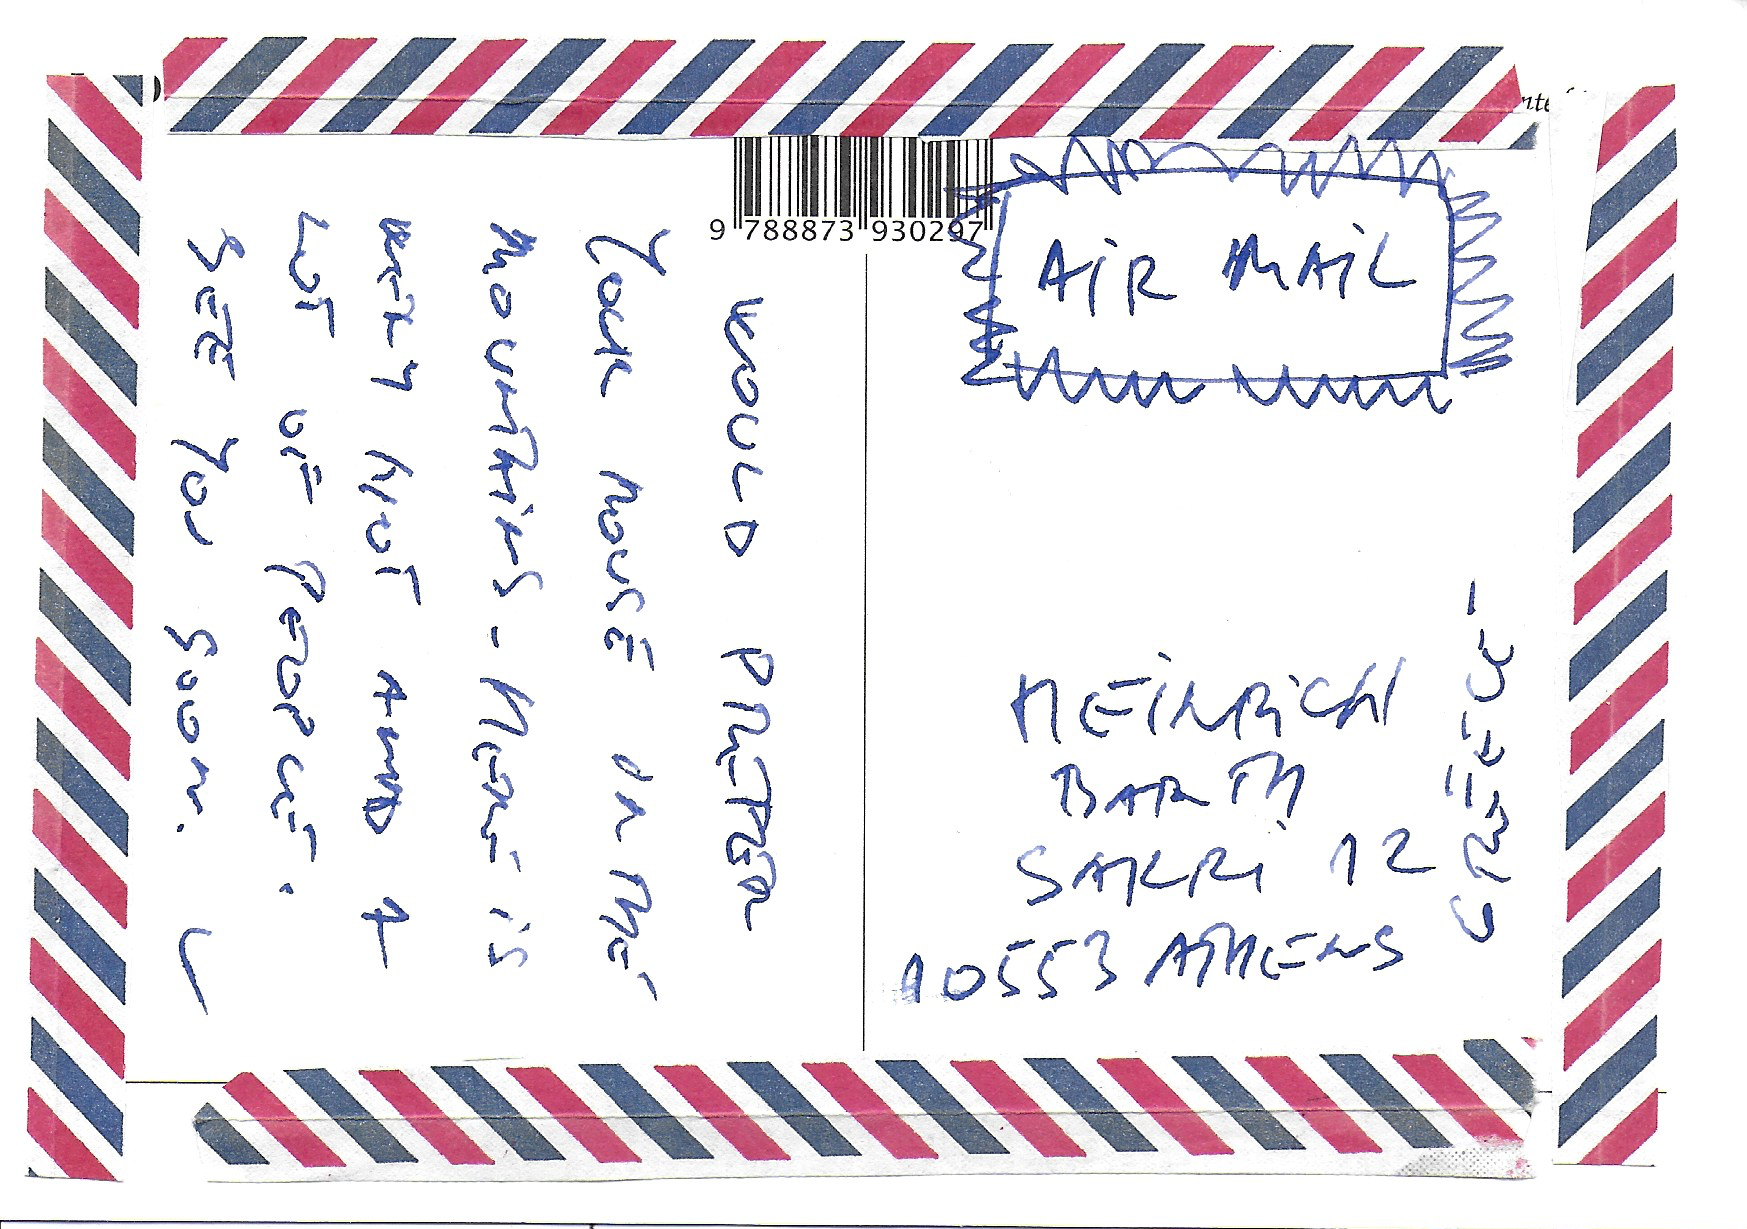 WOULD PREFER
YOUR HOUSE IN THE
MOUNTAINS - HERE IS
VERY HOT AND A
LOT OF PEOPLE.
SEE YOU SOON.
9 788873 930297
AIR MAIL
HEINRICH
BARTH
SARRI 12
10553 ATHENS
GREECE -